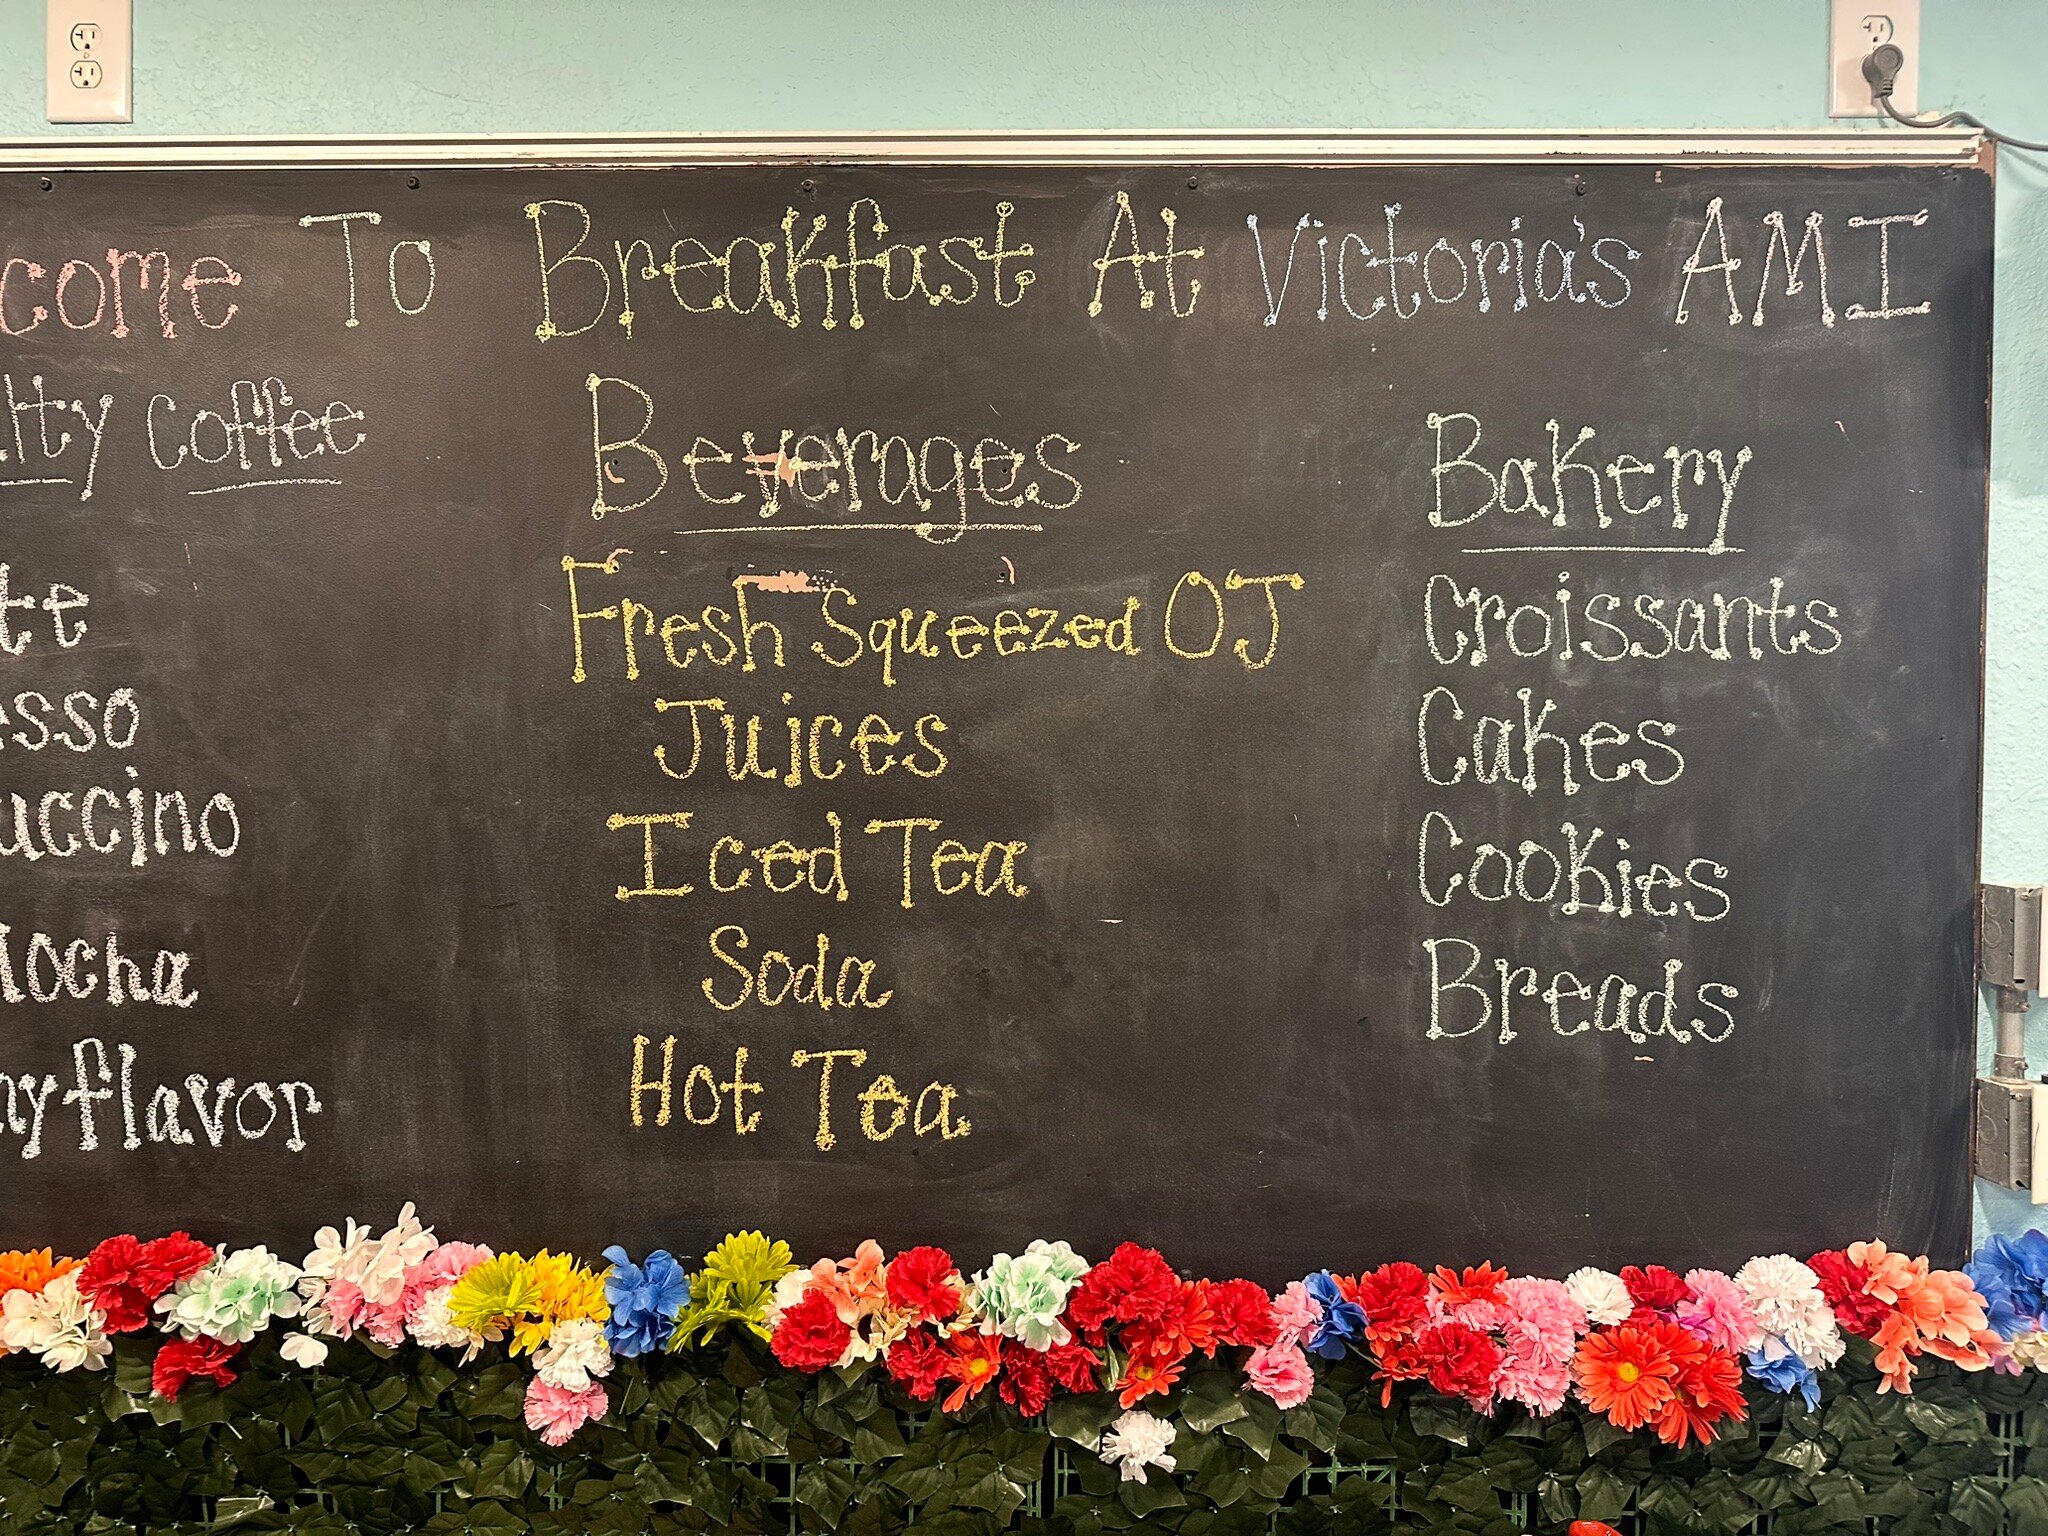 come To Breakfast At Victoria's AMI
lty Coffee
te
esso
uccino
ocha
ny flavor
Beverages
Fresh Squeezed OJ
Juices
Iced Tea
Soda
Hot Tea
Bakery
Croissants
Cakes
Cookies
Breads